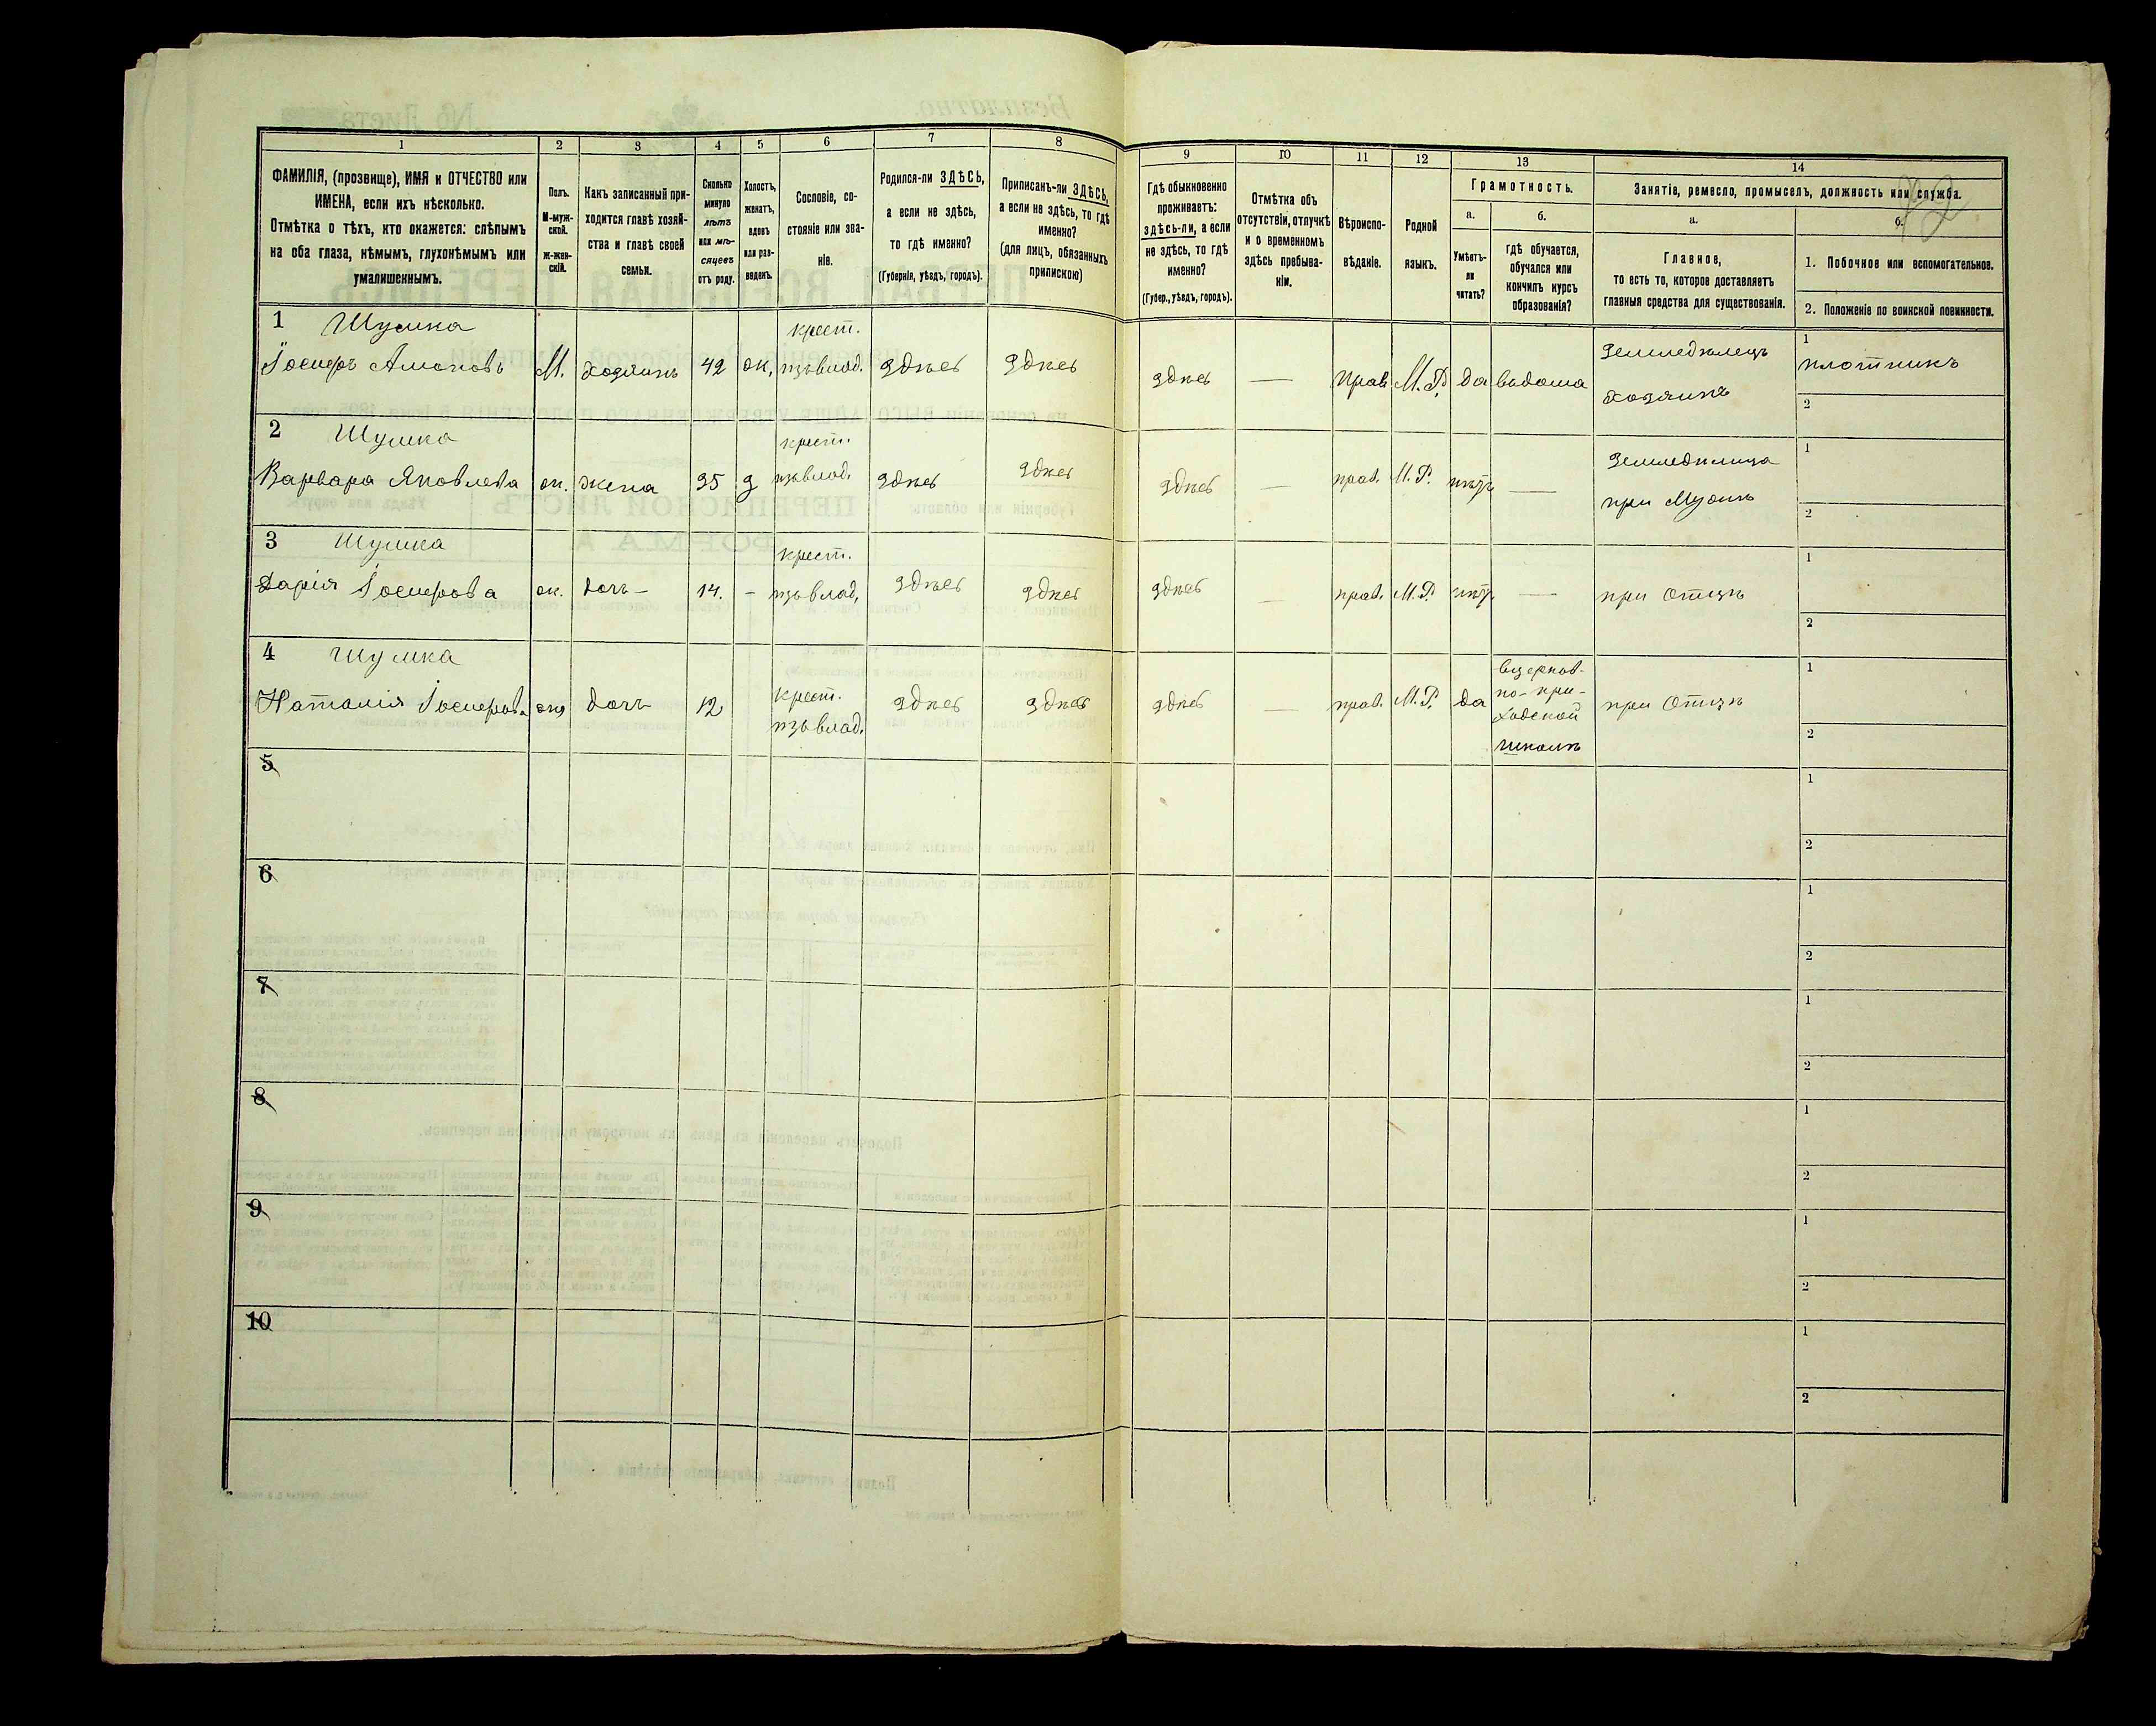 1
2
3
4
5
6
7
8
9
10
11
12
13
14
ФАМИЛІЯ, (прозвище), ИМЯ и ОТЧЕСТВО или
ИМЕНА, если ихъ нѣсколько.
Отмѣтка о тѣхъ, кто окажется: слѣпымъ
на оба глаза, нѣмымъ, глухонѣмымъ или
умалишеннымъ.
Полъ.
М-муж-
ской.
ж-жен-
скій.
Какъ записанный при-
ходится главѣ хозяй-
ства и главѣ своей
семьи.
Сколько
минуло
лѣтъ
или мѣ-
сяцевъ
отъ роду.
Холостъ,
женатъ,
вдовъ
или раз-
веденъ.
Сословіе, со-
стояніе или зва-
ніе.
Родился-ли ЗДѢСЬ,
а если не здѣсь,
то гдѣ именно?
(Губернія, уѣздъ, городъ).
Приписанъ-ли ЗДѢСЬ,
а если не здѣсь, то гдѣ
именно?
(для лицъ, обязанныхъ
припискою)
Гдѣ обыкновенно
проживаетъ:
здѣсь-ли, а если
не здѣсь, то гдѣ
именно?
(Губер., уѣздъ, городъ).
Отмѣтка объ
отсутствіи, отлучкѣ
и о временномъ
здѣсь пребыва-
ніи.
Вѣроиспо-
вѣданіе.
Родной
языкъ.
Грамотность.
а.
б.
Умѣетъ-
ли
читать?
гдѣ обучается,
обучался или
кончилъ курсъ
образованія?
Занятіе, ремесло, промыселъ, должность или служба.
а.
б.
Главное,
то есть то, которое доставляетъ
главныя средства для существованія.
1. Побочное или вспомогательное.
2. Положеніе по воинской повинности.
1 Шумка крест. Земледѣлецъ 1
М. Хозяинъ 42 ж, изъ влад. Здѣсь Здѣсь Здѣсь — Прав. М.Р. да дома хозяинъ плотникъ
2
2 Шумка крест. Земледѣлица 1
Варвара Яковлева ж. жена 35 з изъ влад. Здѣсь Здѣсь Здѣсь — прав. М.Р. нѣтъ — при Мужѣ
2
3 Шумка крест. 1
Дарія ж. дочь — 14. — изъ влад. Здѣсь Здѣсь Здѣсь — прав. М.Р. нѣтъ — при Отцѣ
2
4 Шумка вцерков- 1
Наталія ж дочь 12 крест. Здѣсь Здѣсь Здѣсь — прав. М.Р. да но-при- при Отцѣ
изъ влад. ходской
школѣ 2
5 1
2
6 1
2
7 1
2
8 1
2
9 1
2
10 1
2